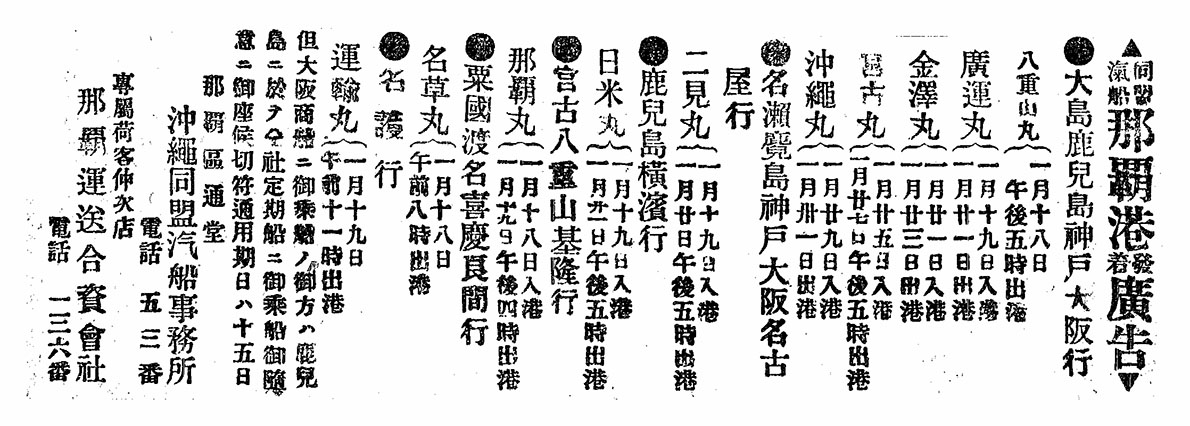 ▲同盟汽船那覇港發着廣告▼
●大島鹿兒島神戸大阪行
八重山丸{一月十八日
午後五時出港
廣運丸{一月十九日入港
一月廿一日出港
金澤丸{一月廿一日入港
一月廿三日出港
宮古丸{一月廿五日入港
一月廿七日午後五時出港
沖繩丸{一月廿九日入港
一月卅一日出港
●名瀨麑島神戸大阪名古
屋行
二見丸{一月十九日入港
一月廿日午後五時出港
●鹿兒島横濱行
日米丸{一月十九日入港
一月廿一日午後五時出港
●宮古八重山基隆行
那覇丸{一月十八日入港
一月十九日午後四時出港
●粟國渡名喜慶良間行
名草丸{一月十八日
午前八時出港
●名護行
運輸丸{一月十九日
午前十一時出港
但大阪商船ニ御乘船ノ御方ハ鹿兒
島ニ於テ仝社定期船ニ御乘船御隨
意ニ御座候切符通用期日ハ十五日
那覇區通堂
沖繩同盟汽船事務所
電話 五三番
專屬荷客仲次店
那覇運送合資會社
電話 一三六番